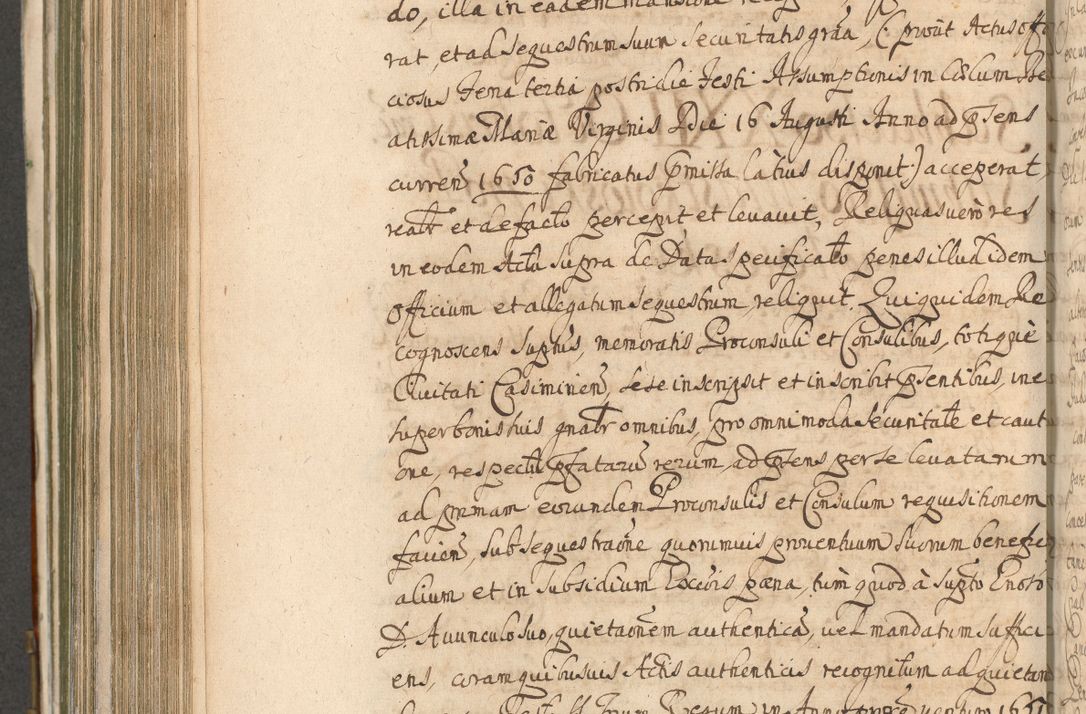 do, illa in eadem mansione
rat, et ad sequestrum suum securitatis grãa, (: prout Actus offi
ciosus Feria tertia postridie Festi Assumptionis in Cœlum Be
atissimæ Mariæ Virginis Die 16 Augusti Anno ad pñsens
curreñ 1650 fabricatus pmissa latius disponit :) acceperat
realr et de facto percepit et levavit, Reliquas vero res
in eodem Actu supra de Data specificato penes illud idem
Officium et allegatum sequestrum reliquit. Qui quidem Re
cognoscens supñs, memoratis Proconsuli et Consulibus, totique
Civitati Casimirieñ, sese inscripsit et inscribit pñsentibus, ine
super bonis suis gnalr omnibus, pro omnimoda securitate et cauti
one, respectu pfatarũ rerum, ad pñsens per se levatarum
ad primam eorundem Proconsulis et Consulum requisitionem
facieñ, sub sequestraõne quorumvis proventuum suorum benefici
alium et in subsidium Excõis pæna, tum quod à supto Gnoso
D. Avunculo suo, quietaõnem authenticã, vel mandatum suffici
ens, coram quibusvis Actis authenticis recognitum ad quietand